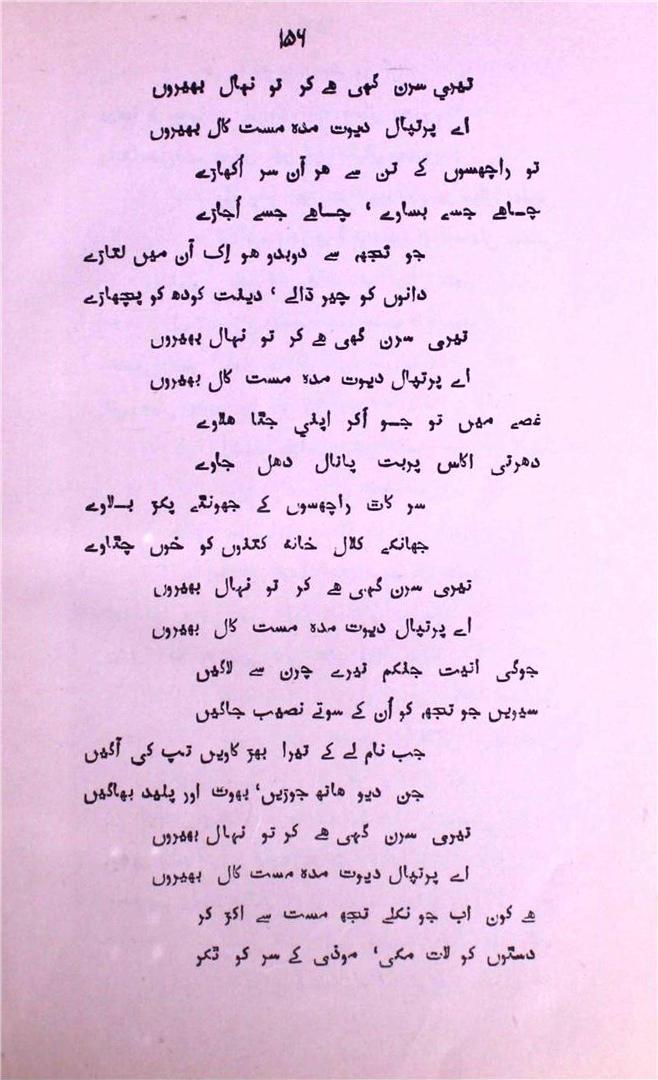 ۱۵۶
تیری سرن گہی ہے کر تو نہال بھیروں
اے پرتپال دیوت مدہ مست کال بھیروں
تو راچھسوں کے تن سے ہو آن سر اُکھاڑے
چاہے جسے بساوے ‘ چاہے جسے اُجاڑے
جو تجھ سے دوبدو ہو اِک آن میں لتاڑے
دانوں کو چیر ڈالے ‘ دیئت کودھ کو پچھاڑے
تیری سرن گہی ہے کر تو نہال بھیروں
اے پرتپال دیوت مدہ مست کال بھیروں
غصے میں تو جسو اُکر اپنی جٹا ہلاوے
دھرتی اکاس پربت پاتال دھل جاوے
سر کاٹ راچھسوں کے جھونٹے پکڑ ہلاوے
جھانکے کلال خانہ کتنوں کو خوں چٹاوے
تیری سرن گہی ہے کر تو نہال بھیروں
اے پرتپال دیوت مدہ مست کال بھیروں
جوگی اتیت جنگم تیرے چرن سے لاگیں
سیویں جو تجھ کو اُن کے سوتے نصیب جاگیں
جب نام لے کے تیرا بھڑکاویں تپ کی آگیں
جن دیو ہاتھ جوڑیں‘ بھوت اور پلید بھاگیں
تیری سرن گہی ہے کر تو نہال بھیروں
اے پرتپال دیوت مدہ مست کال بھیروں
ہے کون اب جو نکلے تجھ مست سے اکڑ کر
دسٹوں کو لات مکی‘ موذی کے سر کو ٹکر